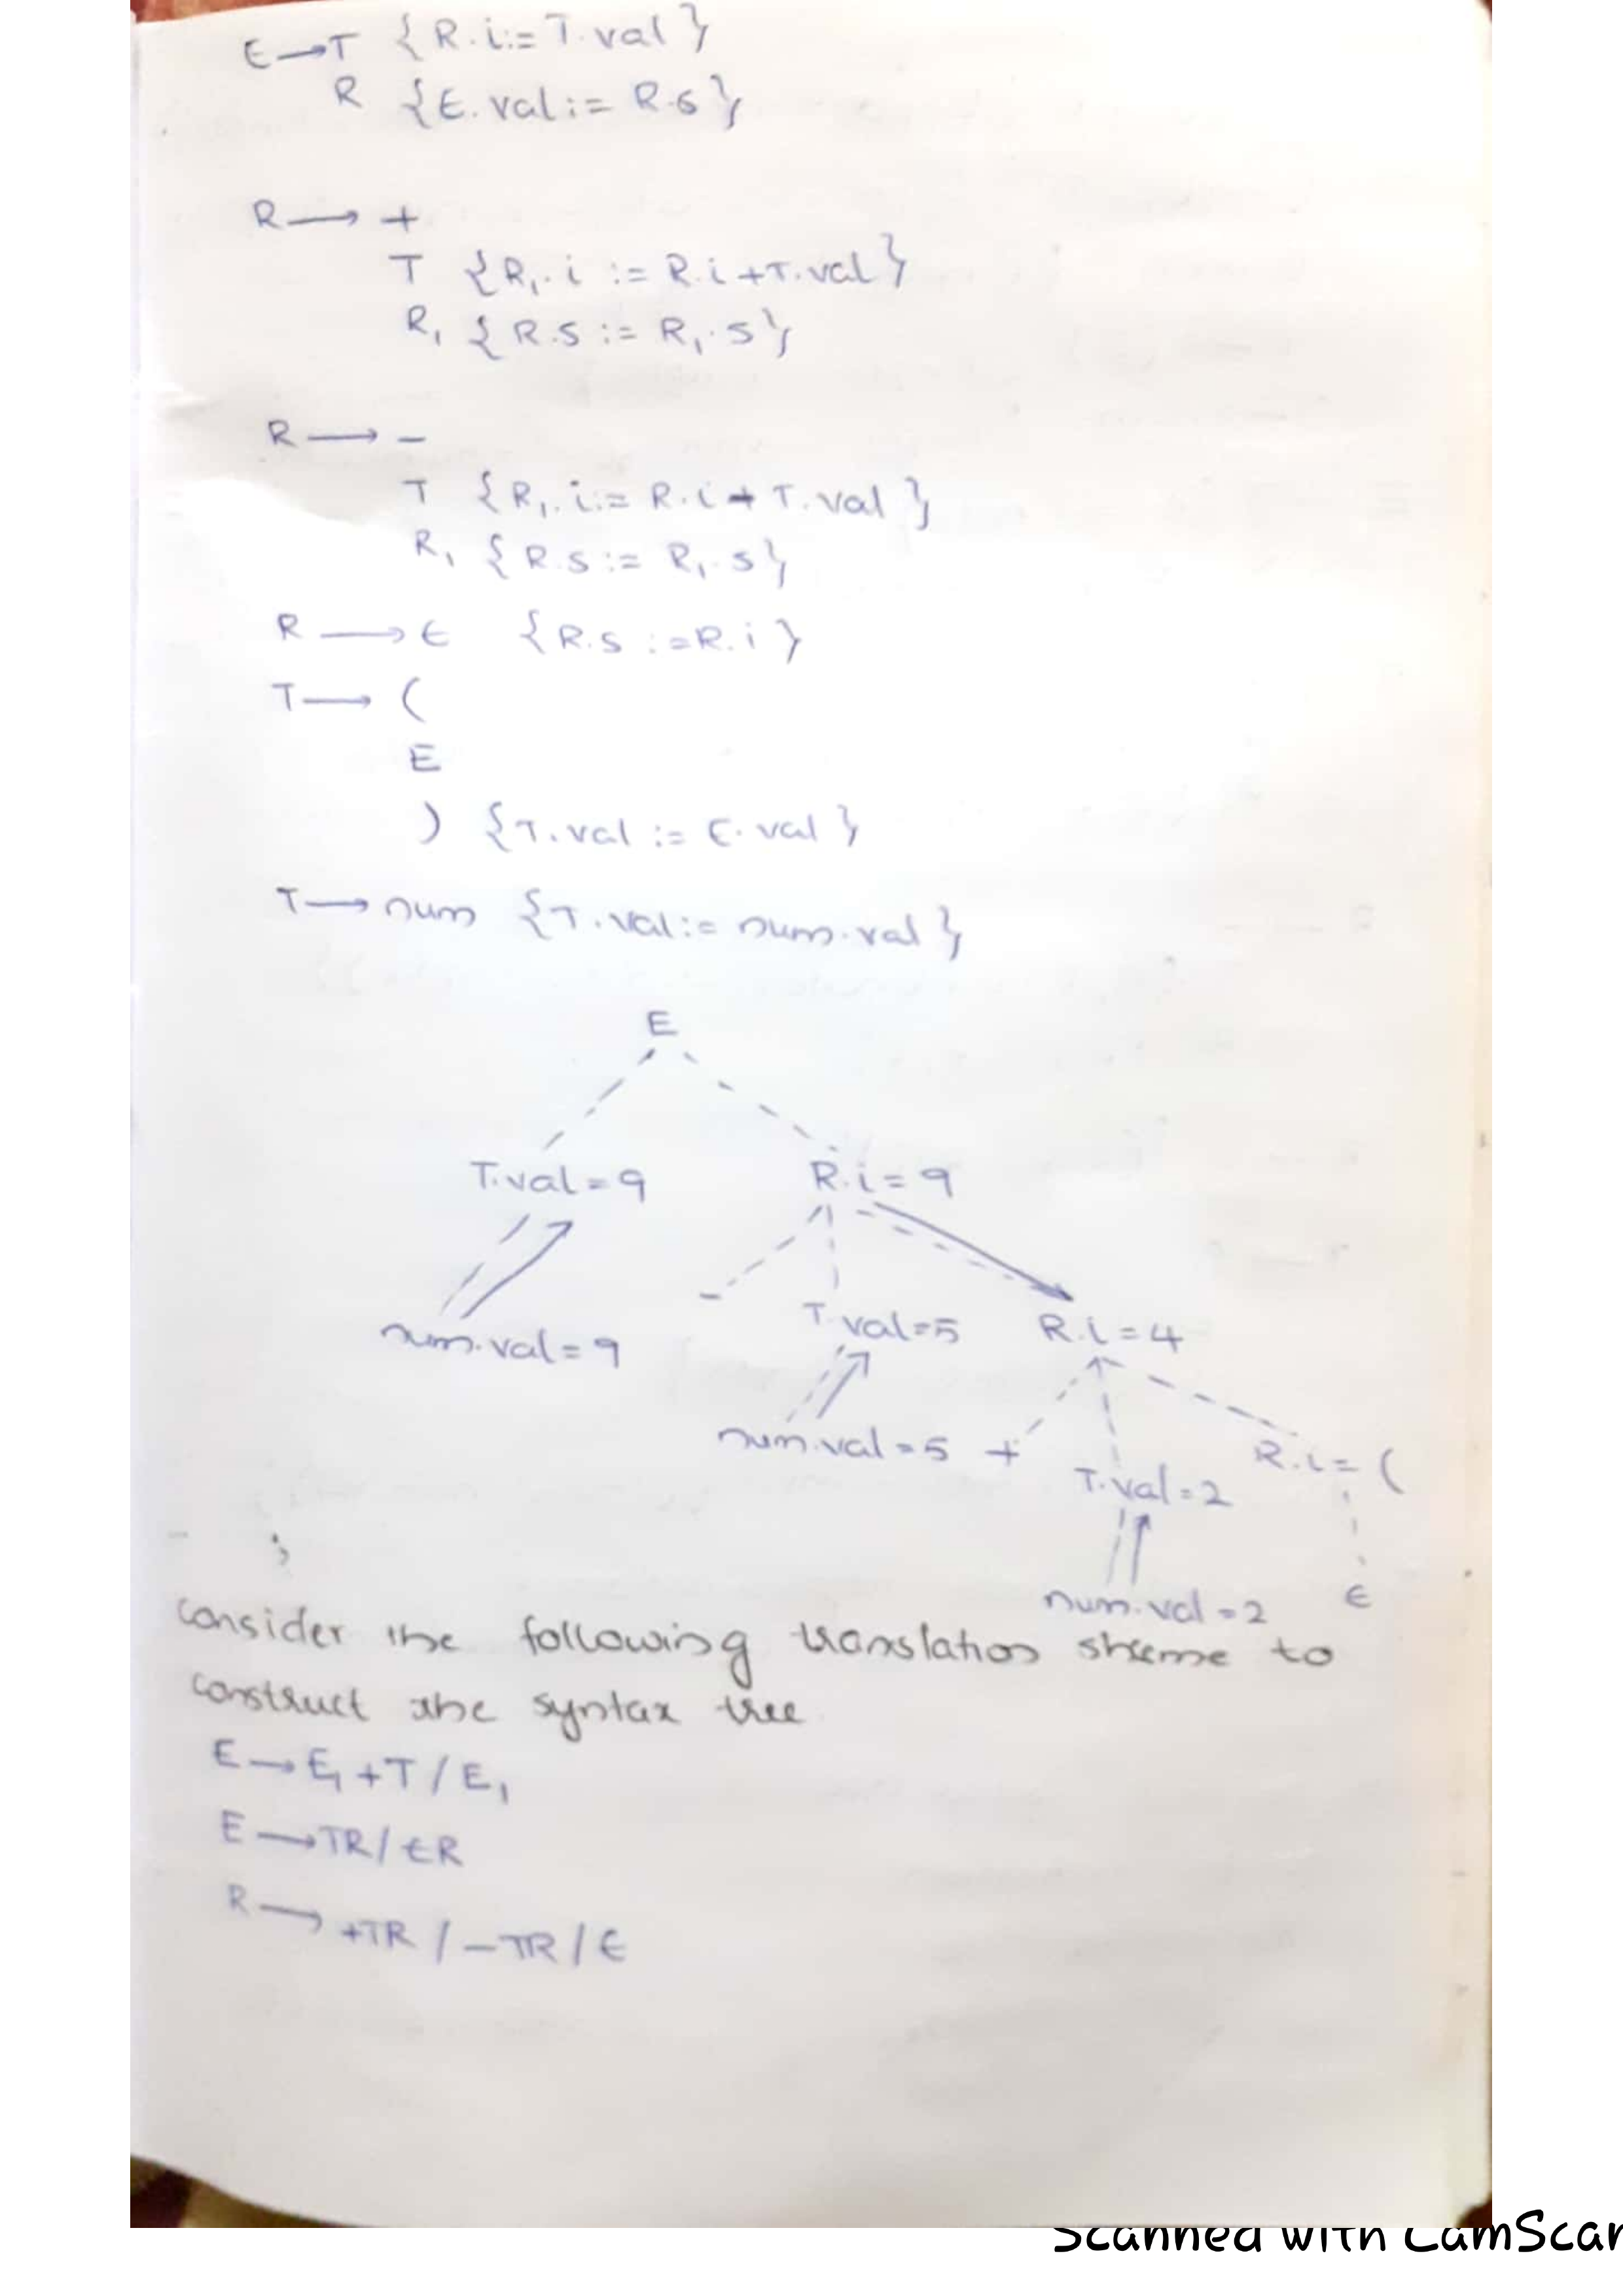 E → T {R.i:= T.val}
R {E.val:= R.s}
R → +
T {R₁.i := R.i + T.val}
R₁ {R.s := R₁.s}
R → -
T {R₁.i:= R.i + T.val}
R₁ {R.s := R₁.s}
R → ϵ {R.s := R.i}
T → (
E
) {T.val := E.val}
T → num {T.val:= num.val}
E
T.val = 9 R.i = 9
- T.val=5 R.i = 4
num.val = 9
num.val = 5 + T.val = 2 R.i = (
num.val = 2 ϵ
consider the following translation sheme to
construct the syntax tree
E → E₁ + T / E₁
E → TR / tR
R → +TR / -TR / ϵ
Scanned with CamScan